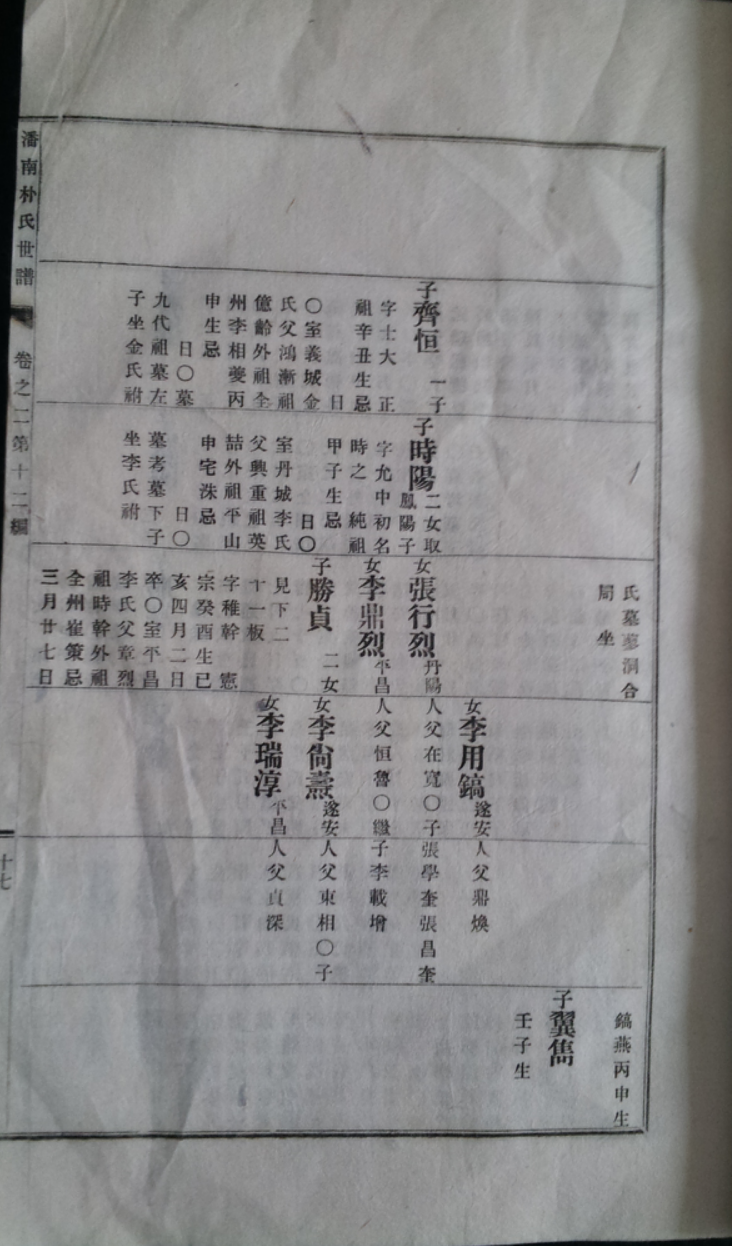 氏墓蓼洞合
局坐
子齊恒 一子
字士大 正
祖辛丑生忌
日
〇室義城金
氏父鴻漸祖
億齡外祖全
州李相夔丙
申生忌
日〇墓
九代祖墓左
子坐金氏祔
子時陽 二女取
鳳陽子
字允中初名
時之 純祖
甲子生忌
日〇
室丹城李氏
父興重祖英
喆外祖平山
申宅洙忌
日〇
墓考墓下子
坐李氏祔
女張行烈 丹陽人父在寬〇子張學奎張昌奎
女李鼎烈 平昌人父恒魯〇繼子李載增
子勝貞 二女
見下二
十一板
字稚幹 憲
宗癸酉生已
亥四月二日
卒〇室平昌
李氏父章烈
祖時幹外祖
全州崔策忌
三月廿七日
女李用鎬 遂安人父鼎煥
女李尙燾 遂安人父東相〇子
女李瑞淳 平昌人父貞深
鎬燕丙申生
子翼雋
壬子生
潘南朴氏世譜 卷之二第十二編
十七